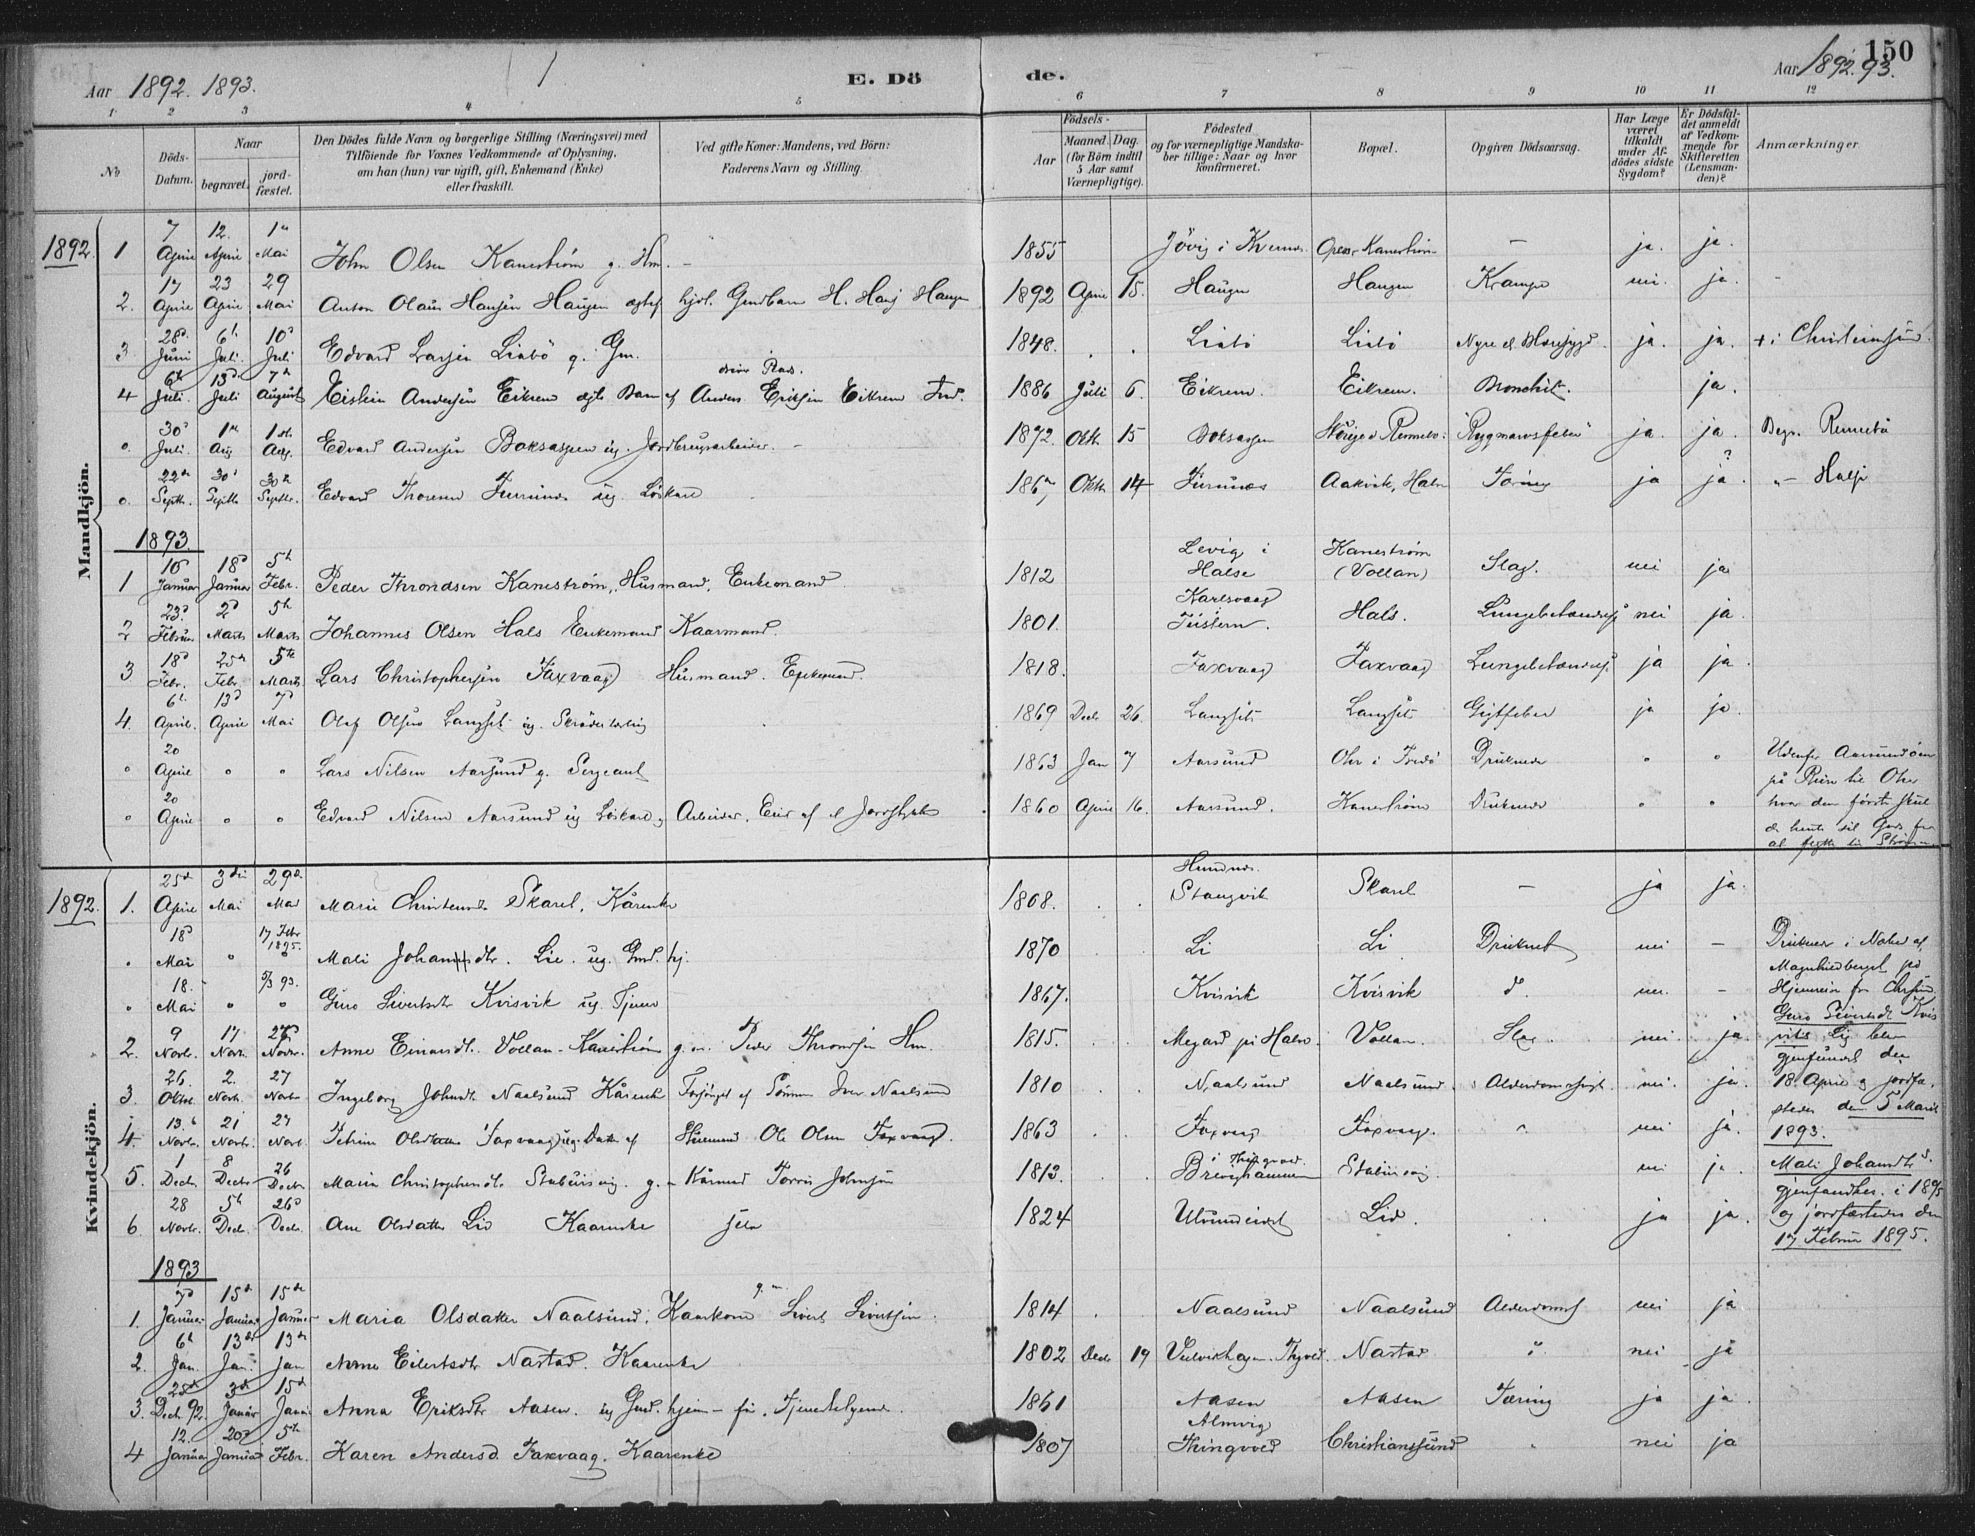 Aar 1892. 1893.
E. Dö de.
Aar 1892. 93.
150
1 2 3 4 5 6 7 8 9 10 11 12
No
Döds-Datum.
Naar
begravet.
jordfæstet.
Den Dödes fulde Navn og borgerlige Stilling (Næringsvei) med Tilföiende for Voxnes Vedkommende af Oplysning, om han (hun) var ugift, gift, Enkemand (Enke) eller fraskilt.
Ved gifte Koner: Mandens, ved Börn: Faderens Navn og Stilling.
Födsels-
Aar
Maaned. Dag.
(for Börn indtil 5 Aar samt Værnepligtige).
Födested og for værnepligtige Mandskaber tillige: Naar og hvor konfirmeret.
Bopæl.
Opgiven Dödsaarsag.
Har Læge været tilkaldt under Afdödes sidste Sygdom?
Er Dödsfaldet anmeldt af Vedkommende for Skifteretten (Lensmanden)?
Anmærkninger.
Mandkjön.
1892. 1 7 April 12. April 1 Mai John Olsen Kanestrøm g. Hm. – 1855 Jövig i Kvernes Kanestrøm – ja. ja.
2. 17 April 23 April 29 Mai Anton Olaus Hansen Haugen H. Hansj Haugen 1892 April 15. Haugen Haugen Krampe nei. ja. –
3 28d Juni 6t Juli 10d Juli Edvard Larsen Liabö g. Gm. 1848. Liabö Liabö Nyre ja. ja. + i Christiansund.
4 6te Juli 13d Juli 7de August Eistein Andersen Eikrem Barn af Anders Eriksen Eikrem 1886 Juli 6. Eikrem. Eikrem. Bronchit. ja.
o. 30d Juli 1 Aug 1st Aug. Edvard Andersen Boksaspen ug. Jordbrugsarbeider. – 1872. Okt. 15 Boksaspen Rygmarvsfeber ja. ja. Begr. Rennebu
o. 22de Septb. 30d Septb 30te Septbr. Edvard Thoresen Furunes ug. Löskarl 186 Oktb 14 Furunæs Aakvik, Halse Tæring ja ja ? –"– Halse
1893.
1 16 Januar 18d Januar 5te Febr. Peder Throndsen Kanestrøm, Husmand, Enkemand 1812 Levig i Halse Kanestrøm (Vollan) Slag. nei ja
2 23d Februar 2d Marts 5te Marts Johannes Olsen Hals Enkemand Kaarmand. 1801. Karlsvaag Tustern. Hals. Lungebetændelse nei ja.
3 18d Febr. 25de Febr 5te Marts Lars Christophersen Faxvaag Husmand. Enkemand. 1818. Faxvaag Faxvaag Lungebetændelse ja ja.
4. 6te April. 13d April 7d Mai Olaf Olsen Langset ug. Skræderlærling 1869 Decb 26. Langset Langset Gigtfeber ja ja.
" 20 April " " Lars Nilsen Aarsund g. Sergeant 1863 Jan 7 Aarsund Ohr i Fredö Druknede " " Udenfor Aarsundöen
" 20 April " " Edvard Nilsen Aarsund ug Löskarl, Arbeider, Eier af 1860 April 16. Aarsund. Kanestrøm Druknede " "
på Reise til Ohr
hvor den første skulde hente sit Gods for at flytte til
Kvindekjön.
1892. 1. 25d April 3die Mai 29de Mai Marie Christensdtr Skarel, Kårenke 1808. Stangvik Skarel – ja ja.
" 18d Mai " 17 Febr 1895. Mali Johansdtr. Lie. ug. Gmd. hj. 1870 Li Li Druknet nei –
" 18. Mai " 5/3 93. " Guro Sivertsdtr Kvisvik ug. Tjener 1867. Kvisvik Kvisvik d. nei. –
2. 9 Novbr. 17 Novb. 27d Novbr. Anne Einarsdtr. Vollan-Kanestrøm g. m. Peder Throndsen Hm. 1815. Megard på Halse. Vollan. Slag. nei. ja.
3. 26. Oktbr. 2. Novb. 27 Novb. Ingeborg Johnsdtr Naalsund Kårenke Forsörget af Sönnen Iver Naalsund 1810 Naalsund Naalsund. Alderdomssvaghed. nei. ja.
4. 13. Novbr. 21 Novb. 27 Novb. Olsdatter Faxvaag, ug. Datter af Husmand Ole Olsen Faxvaag. 1863 Faxvaag Faxvaag. " nei ja.
5. 1 Decb. 8 Decb. 26 Decbr Marie Christophersdtr. Stabursvig. g. – Kårmand Torris Johnsen 1813. i Thingvoed. Stabursvig nei ja.
6. 28 Novbr. 5te Decb. 26d Decbr. Ane Olsdatter Lid Kaarenke 1824 Ulsundeidet Lid. ja ja.
Druknede i Nærhed af
på
Hjemreise fra Chrsund.
Guro Sivertsdtr Kvisviks Lig blev
gjenfundet den
18. April og jordfæstedes den 5 Marts
1893.
Mali Johansdtrs.
gjenfandtes i 1895
og jordfæstedes den
17 Februar 1895.
1893
1. 7d Januar 15de Januar 15de Januar Maria Olsdatter Naalsund, Kaarkone g. m. Sivert Sivertsen. 1814 Naalsund Naalsund Alderdomssv. nei ja
2. 6te Jan. 13de Jan. 13de Jan Anne Eilertsdtr Nastad. Kaarenke 1802 Decb 19 Nastad " nei ja
3. 28de Decb 92. 3de Januar 15de Januar Anna Eriksdtr Aasen. ug Gmd. hjem – før Tjenestepige. 1861 Aasen Aasen Tæring ja ja
4 12. Januar 20d Januar 5te Febr. Karen Andersd. Faxvaag. Kaarenke 1807 Almvig Thingvoed Christianssund " nei ja